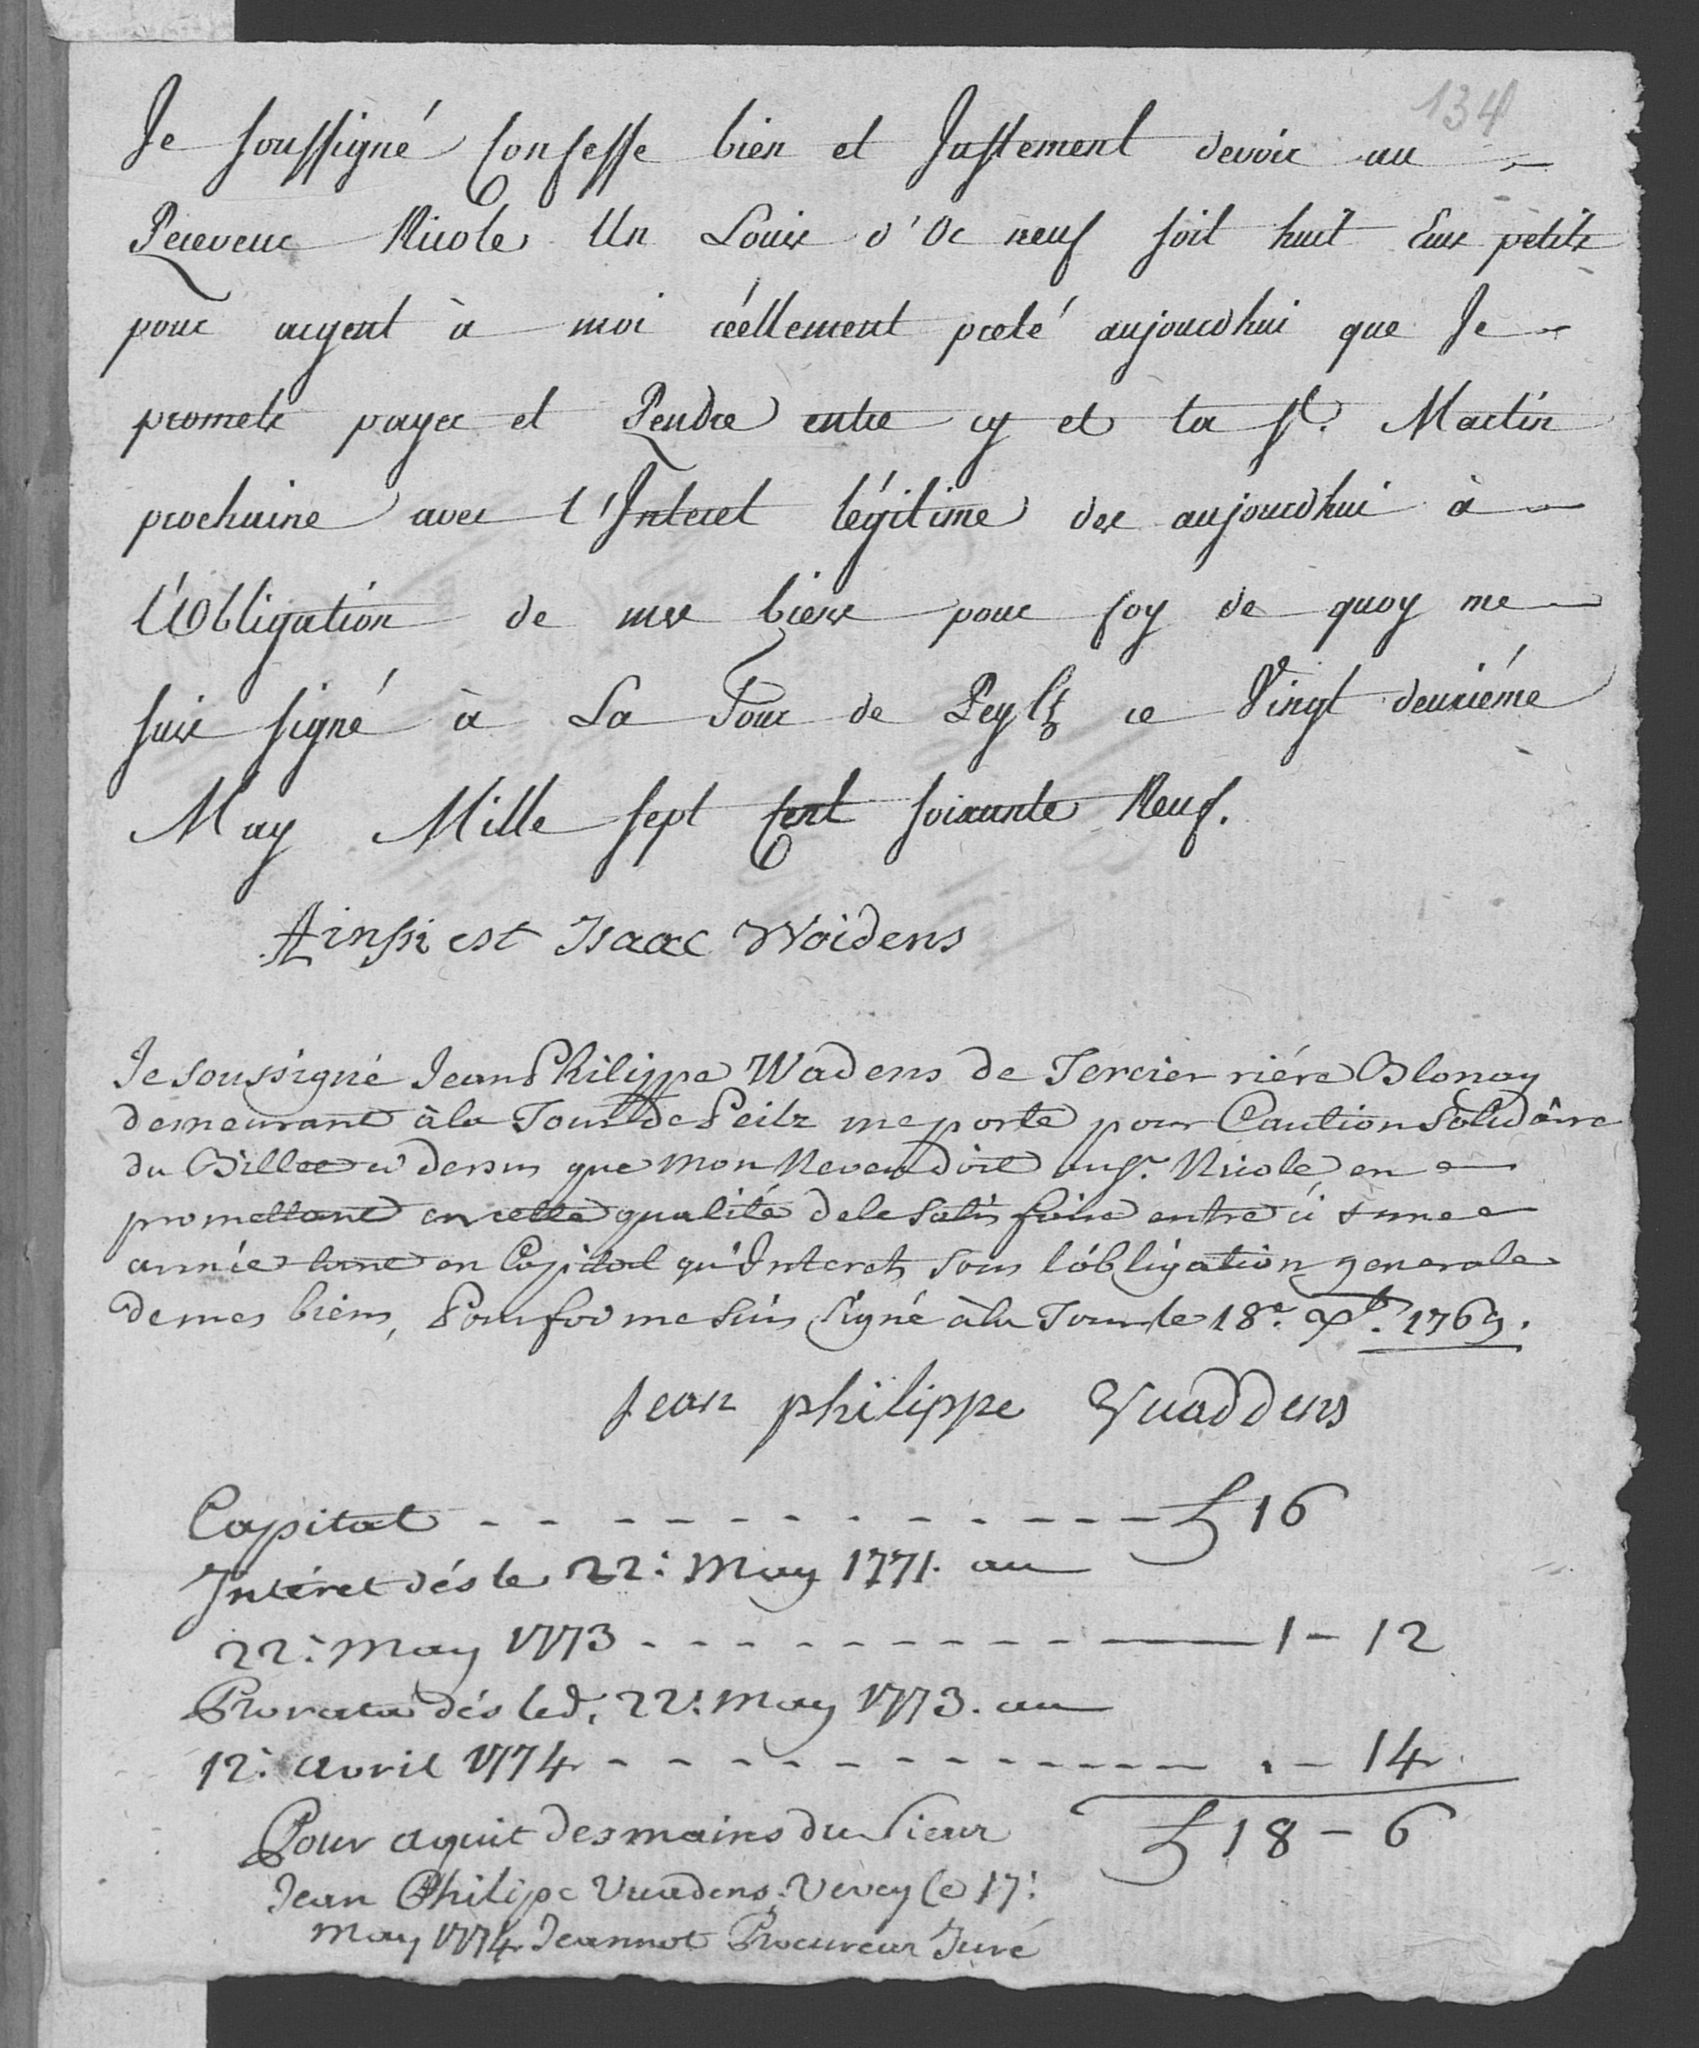 134
Je soussigné Confesse bien et Justement devoir au
Receveur Nicole Un Louis d'Or neuf soit huit Ecus petits
pour argent à moi réellement preté aujourdhui que Je
promets payer et Rendre entre cy et la St. Martin
prochaine avec l'Interet légitime des aujourdhui à
l'Obligation de mes biens pour foy de quoy me
suis signé à La Tour de Peylz ce Vingt deuxiéme
May Mille sept Cent soixante Neuf.
Ainssi est Isaac Woidens
Je soussigné Jean Philippe Wadens de Tercier riére Blonay
demeurant à la Tour de Peilz me porte pour Caution Solidaire
du Billet ci dessus que mon Neveu doit au Sr. Nicole en
promettant en cette qualité de le satisfaire entre ci & une
année tant en Capital qu'Interets sous l'obligation generale
de mes biens, Pour foi me suis signé à la Tour le 18e. Xb. 1769.
Jean philippe Vuaddens
Capital - - - - - - - - - - - - £ 16
Intéret dés le 22: May 1771. au
22: May 1773 - - - - - - - - - 1 - 12
Prorata dés led. 22: May 1773. au
12: avril 1774 - - - - - - - - - . - 14
£ 18 - 6
Pour aquit des mains du Sieur
Jean Philipe Vuadens, Vevey le 17:
May 1774 Jeannot Procureur Juré